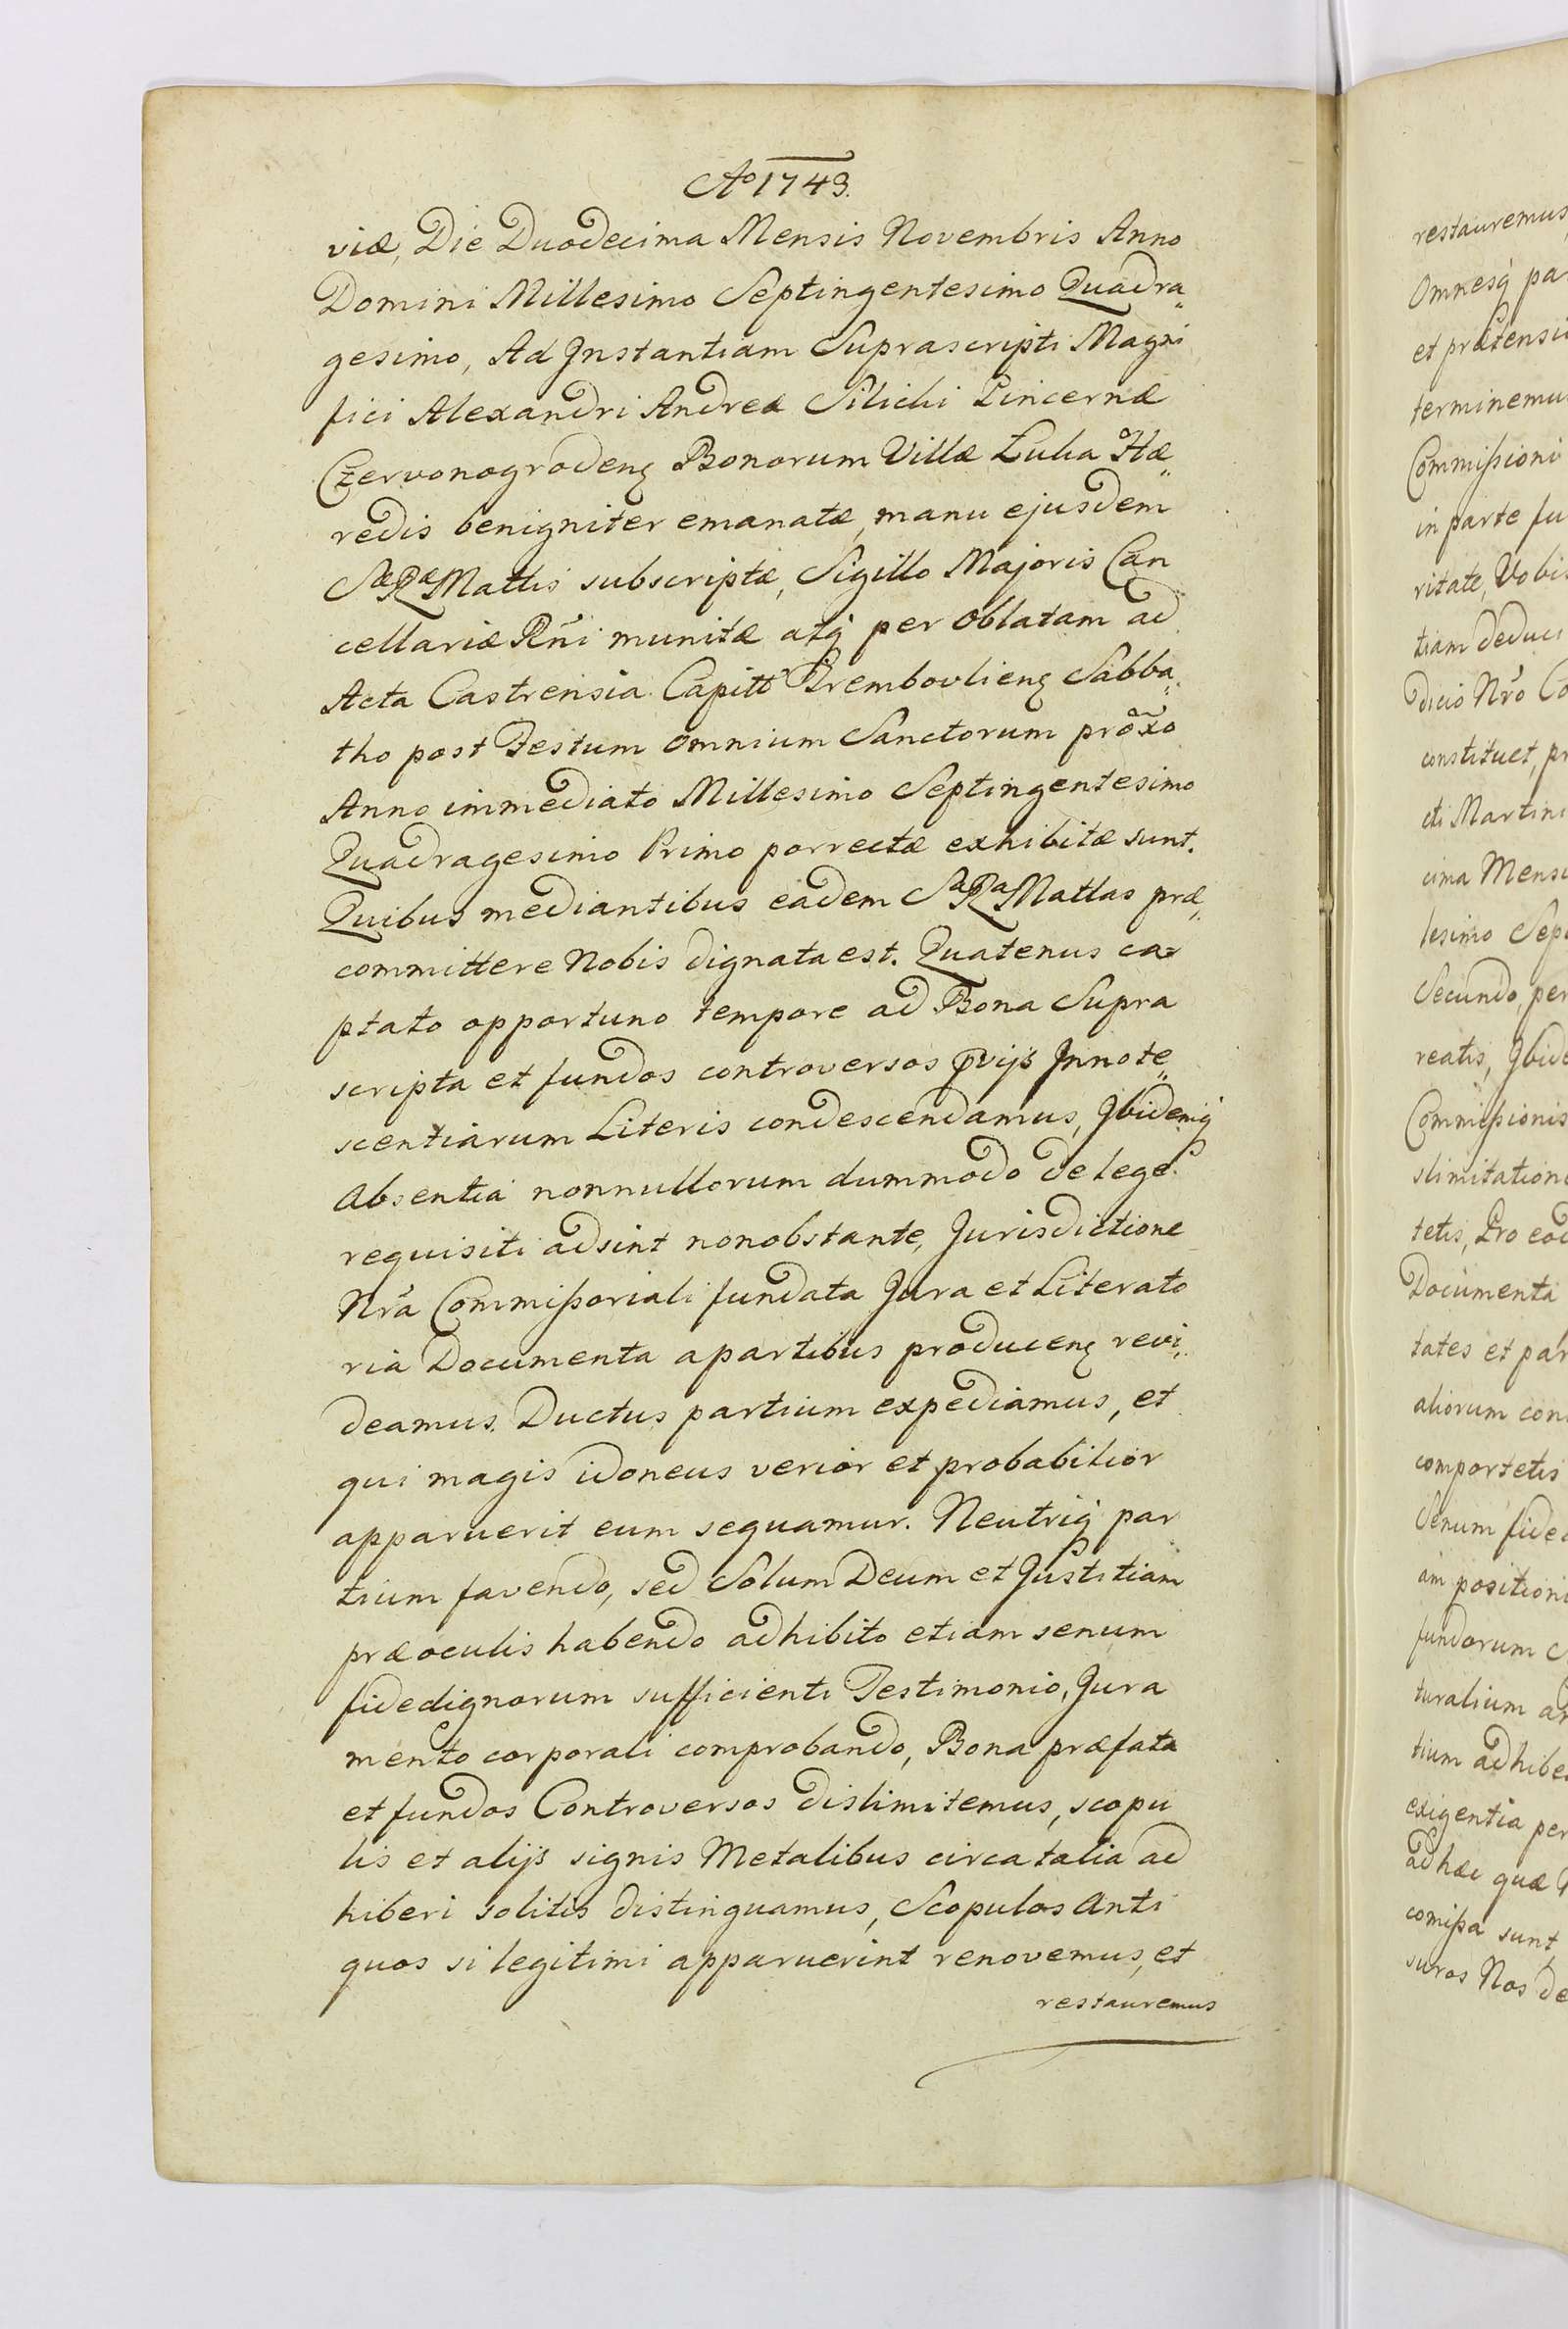 Ao 1743.
viæ, Die Duodecima Mensis Novembris Anno
Domini Millesimo Septingentesimo Quadra„
gesimo, Ad Jnstantiam Suprascripti Magni
fici Alexandri Andreæ Silicki Pincernæ
Czervonogrodenꝫ Bonorum Villæ Luka Hæ„
redis benigniter emanatæ, manu ejusdem
Sæ Ræ Mattis subscriptæ, Sigillo Majoris Can
cellariæ Rñi munitæ atq per Oblatam ad
Acta Castrensia Capitt Trembovlienꝫ Sabba„
tho post Festum Omnium Sanctorum proxõ
Anno immediato Millesimo Septingentesimo
Quadragesimo Primo porrectæ exhibitæ sunt.
Quibus mediantibus eadem Sa Ra Mattas præ„
committere Nobis dignata est. Quatenus ca
ptato opportuno tempore ad Bona Supra
scripta et fundos controversos pvijs Jnnote„
scentiarum Literis condescendamus, Jbidemq
Absentia nonnullorum dummodo de lege
requisiti adsint nonobstante, Jurisdictione
Nrã Commissoriali fundata Jura et Literato
ria Documenta a partibus producenꝫ revi„
deamus. Ductus partium expediamus, et
qui magis idoneus verior et probabilior
apparuerit eum sequamur. Neutriq par
tium favendo, sed Solum Deum et Justitiam
præ oculis habendo adhibito etiam senum
fidedignorum sufficienti Testimonio, Jura
mento corporali comprobando, Bona præfata
et fundos Controversos dislimitemus, scopu
lis et alijs signis Metalibus circa talia ad
hiberi solitis distinguamus, Scopulos Anti
quos si legitimi apparuerint renovemus, et
restauremus
restauremus
Omnesq pa
et prætensi
terminemu
Commissioni
in parte fu
ritate, Vobis
tiam deduci
dicio Nrõ Co
constituet, pr
cti Martini
cima Mensi
lesimo Sep
Secundo, per
reatis, Jbide
Commissionis
slimitation
tetis, Pro eod
Documenta
tates et par
aliorum con
comportetis
Senum fided
am positioni
fundorum
turalium a
tium adhibe
exigentia per
ad hæc quæ
comissa sunt
suros Nos de